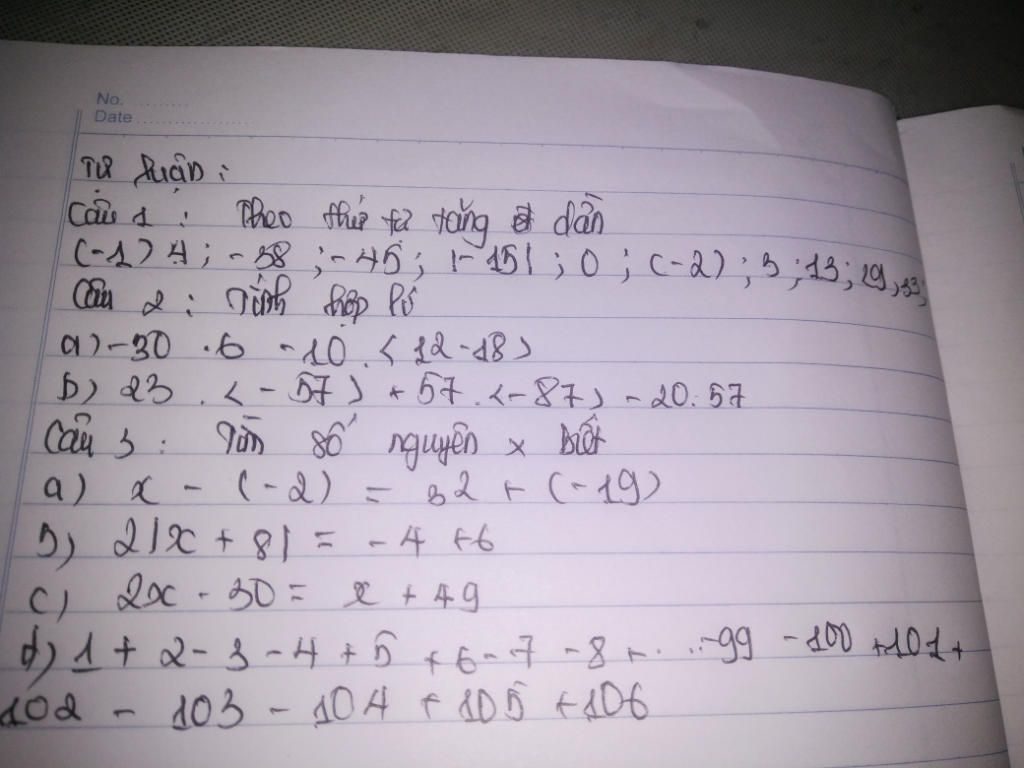 No. ..........
Date ....................
Tự luận :
Câu 1 : Theo thứ tự tăng dần
(-1) 4 ; -38 ; -45 ; |-15| ; 0 ; (-2) ; 3 ; 13 ; 29 , 33 ;
Câu 2 : Tính hợp lí
a) -30 . 6 - 10 . < 12 - 18 >
b) 23 . < - 57 > + 57 . < -87 > - 20 . 57
Câu 3 : Tìm số nguyên x biết
a) x - (-2) = 32 + (-19)
b) 2|x + 8| = -4 + 6
c) 2x - 30 = x + 49
d) 1 + 2 - 3 - 4 + 5 + 6 - 7 - 8 + ... -99 - 100 + 101 +
102 - 103 - 104 + 105 + 106